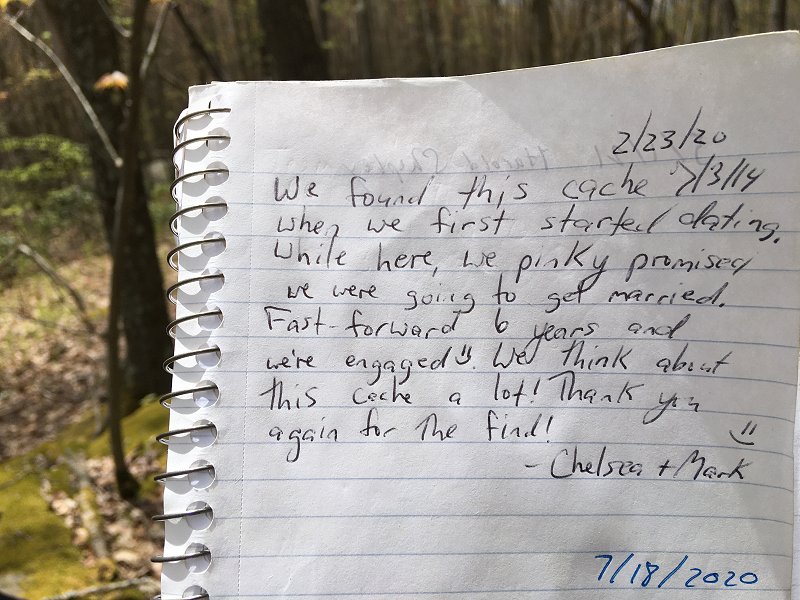 2/23/20
We found this cache 7/3/14
when we first started dating.
While here, we pinky promised
we were going to get married.
Fast-forward 6 years and
we're engaged :). We think about
this cache a lot! Thank you
again for the find!
:)
- Chelsea + Mark
7/18/2020